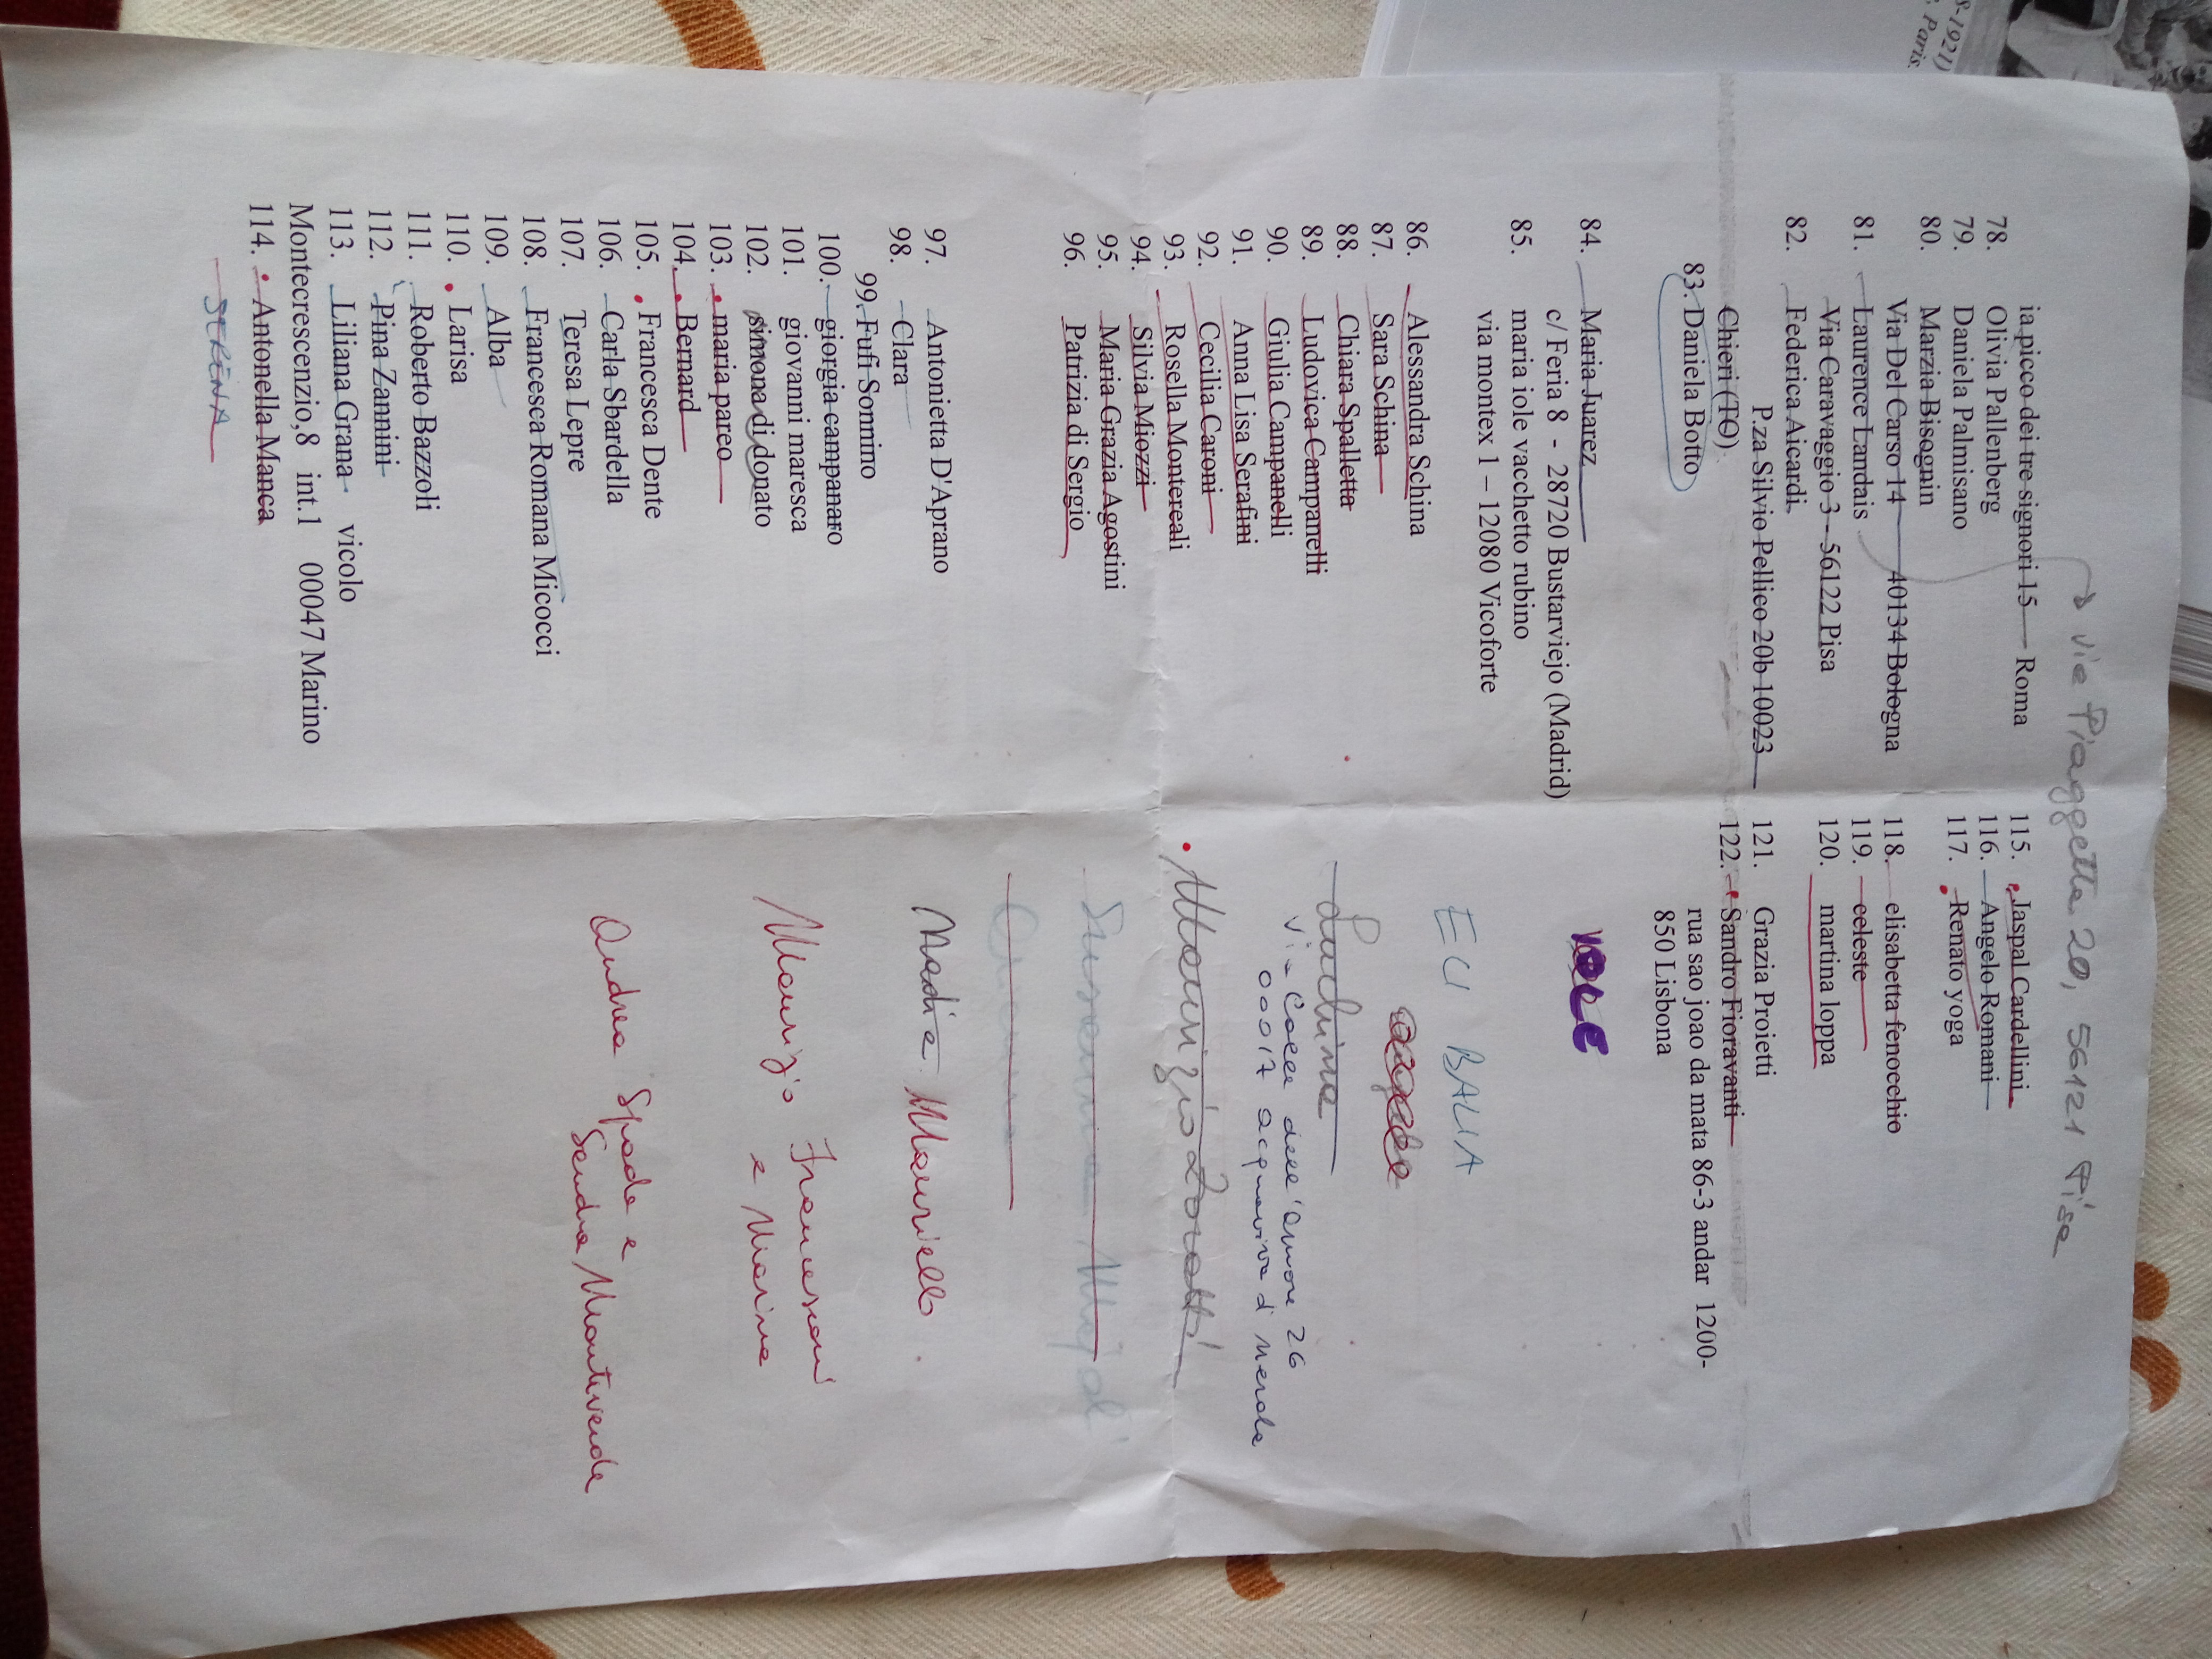 8-1921)
Paris,
via Piaggetta 20, 56121 Pisa
ia picco dei tre signori 15 Roma
78. Olivia Pallenberg
79. Daniela Palmisano
80. Marzia Bisognin
Via Del Carso 14 40134 Bologna
81. Laurence Landais
Via Caravaggio 3 - 56122 Pisa
82. Federica Aicardi.
P.za Silvio Pellico 20b 10023
Chieri (TO)
83. Daniela Botto
84. Maria Juarez
c/ Feria 8 - 28720 Bustarviejo (Madrid)
85. maria iole vacchetto rubino
via montex 1 – 12080 Vicoforte
86. Alessandra Schina
87. Sara Schina
88. Chiara Spalletta
89. Ludovica Campanelli
90. Giulia Campanelli
91. Anna Lisa Serafini
92. Cecilia Caroni
93. Rosella Montereali
94. Silvia Miozzi
95. Maria Grazia Agostini
96. Patrizia di Sergio
97. Antonietta D'Aprano
98. Clara
99. Fufi Sonnino
100. giorgia campanaro
101. giovanni maresca
102. simona di donato
103. maria pareo
104. Bernard
105. Francesca Dente
106. Carla Sbardella
107. Teresa Lepre
108. Francesca Romana Micocci
109. Alba
110. Larisa
111. Roberto Bazzoli
112. Pina Zannini
113. Liliana Grana vicolo
Montecrescenzio,8 int.1 00047 Marino
114. Antonella Manca
SERENA
115. Jaspal Cardellini
116. Angelo Romani
117. Renato yoga
118. elisabetta fenocchio
119. celeste
120. martina loppa
121. Grazia Proietti
122. Sandro Fioravanti
rua sao joao da mata 86-3 andar 1200-
850 Lisbona
ELI BALIA
Luchina
Via Colle dell'amore 26
00017 acquaviva di nerola
Maurizio Zoratti
Nadia Mauriello
Maurizio Francesconi
e Marina
Andrea Spada e
Sandra Monteverde